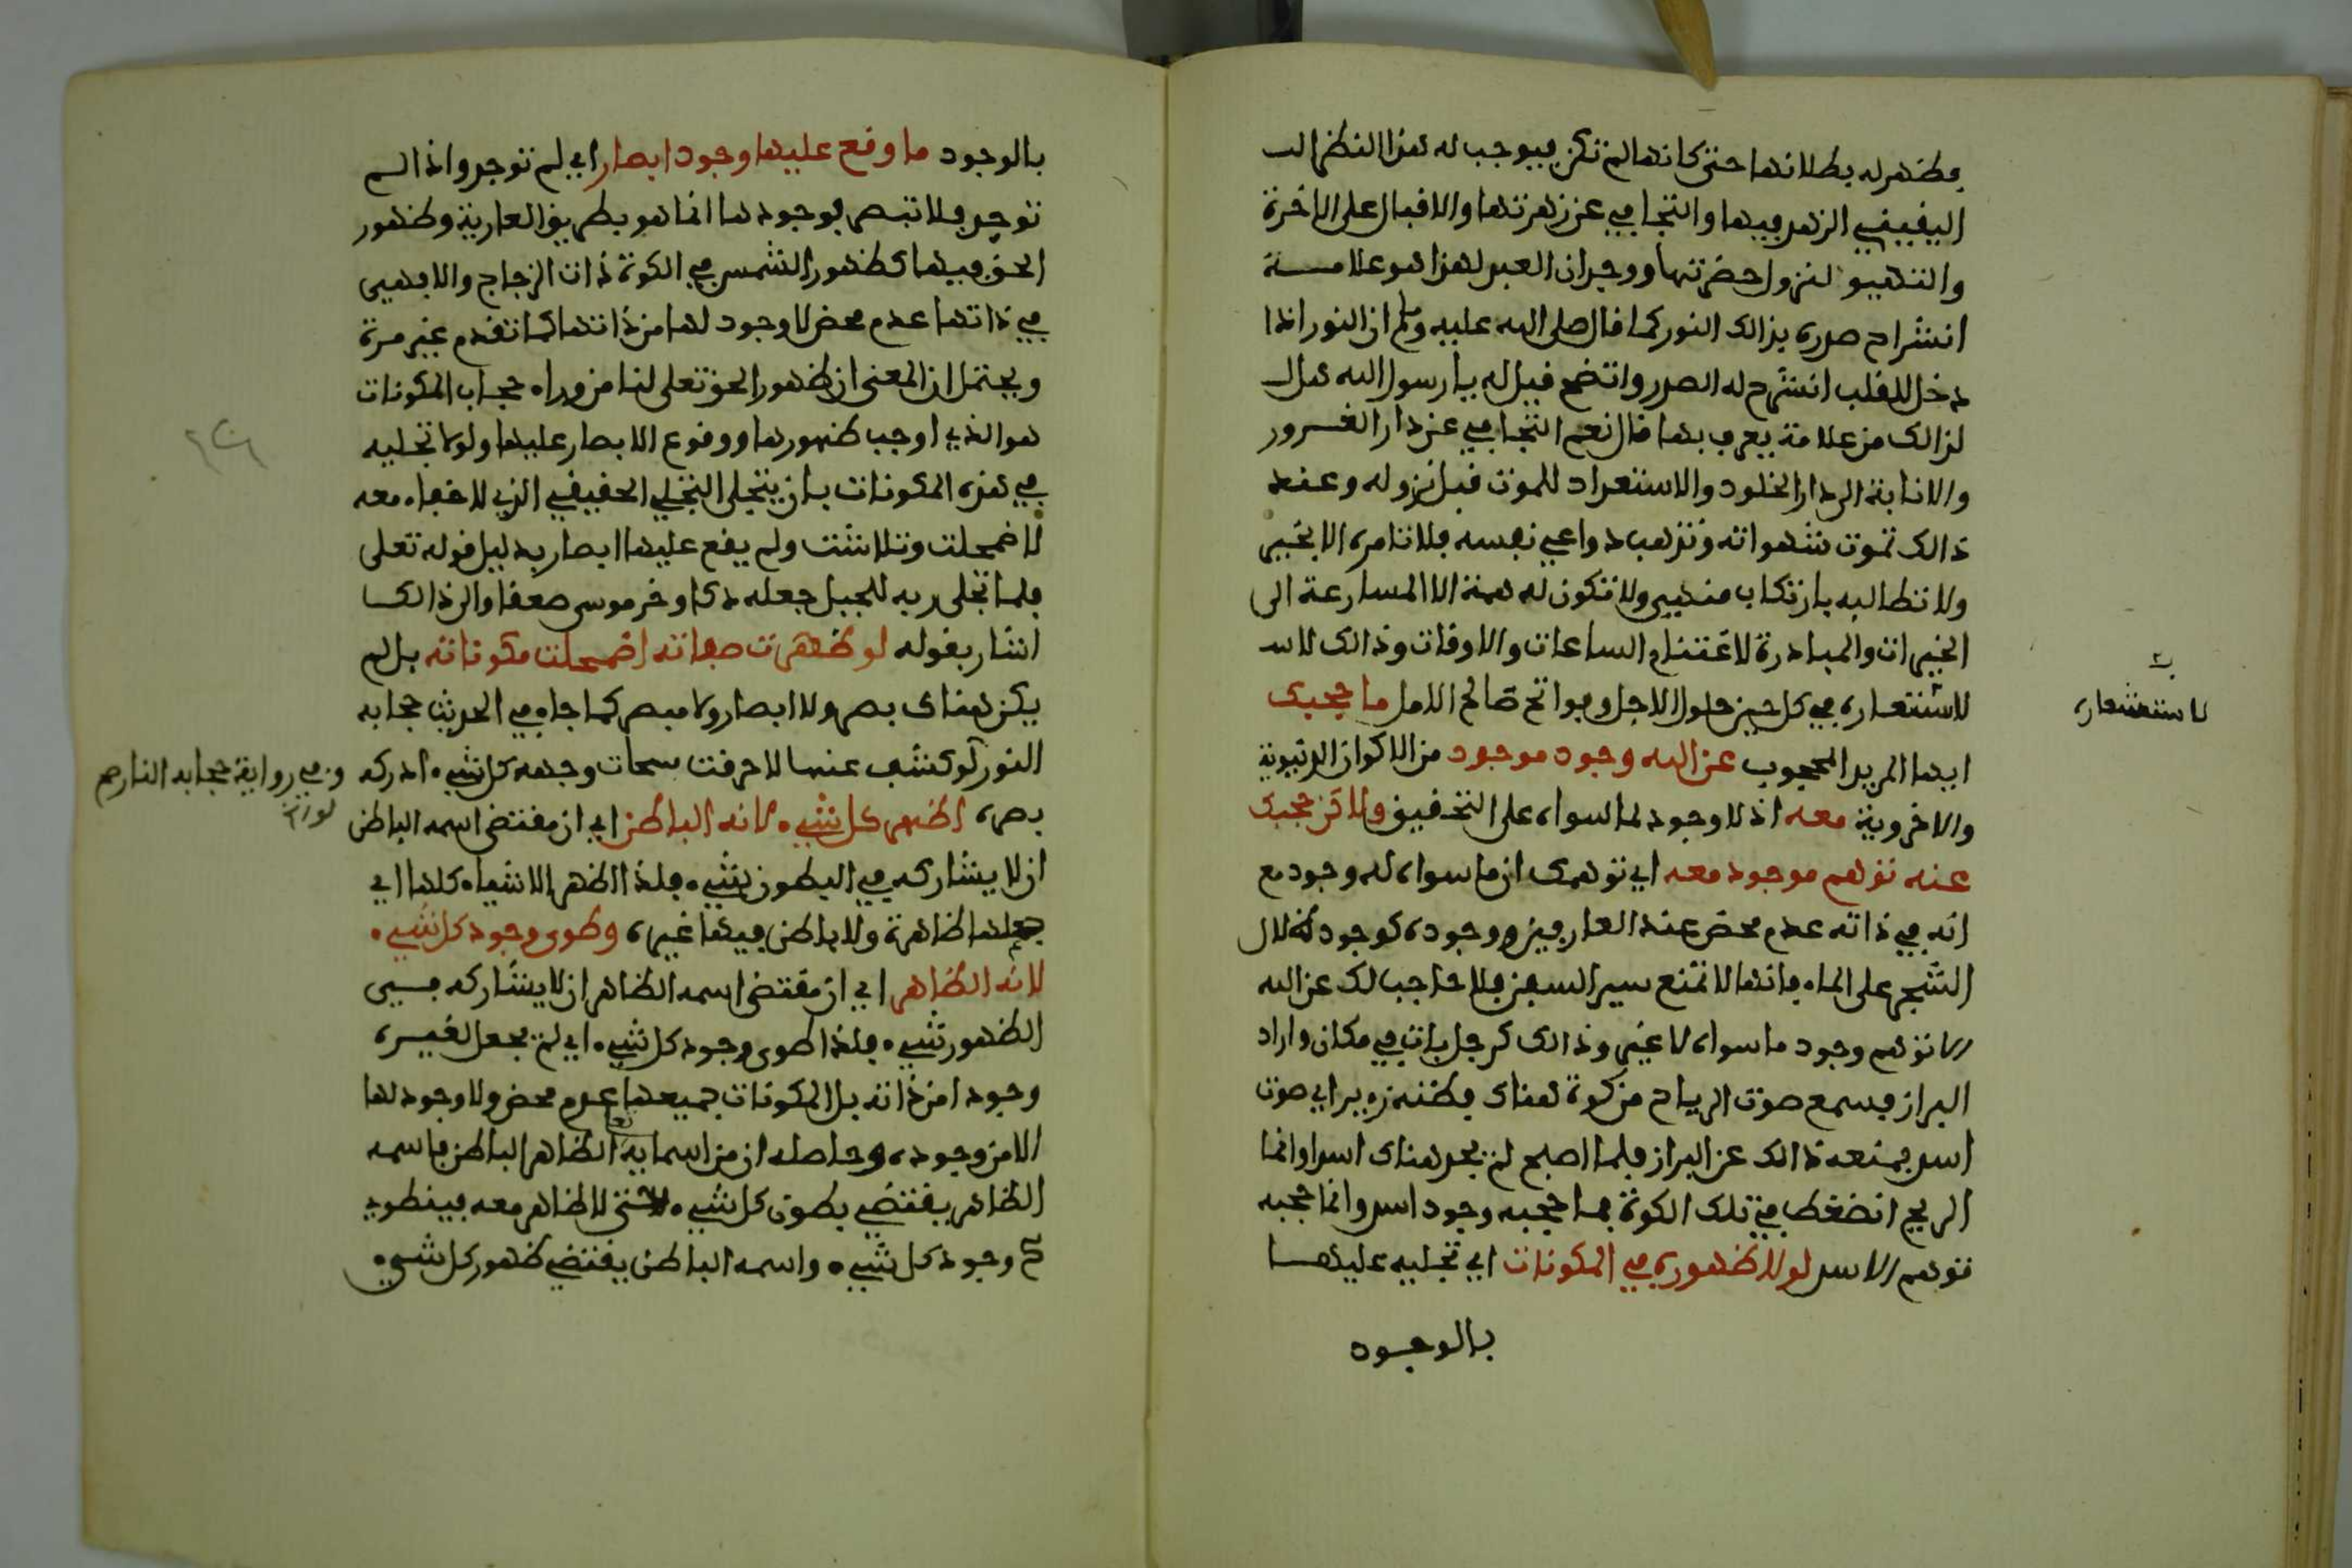 فظهر له بطلانها حتى كانها لم تكن فيوجب له هذا النظر الـ
اليقيني الزهد فيها والتجافي عن زهرتها والاقبال على الاخرة
والتهيؤ لنزول حضرتها ووجدان العبد لهذا هو علامـــة
انشراح صدره بذالك النور كما قال صلى الله عليه وسلم ان النور اذا
دخل القلب انشرح له الصدر واتضح قيل له يا رسول الله هل
لذالك من علامة يعرف بها قال نعم التجافي عن دار الغـرور
والانابة الى دار الخلود والاستعداد للموت قبل نزوله وعند
ذالك تموت شهواته وتذهب دواعي نفسه فلا تامره الا بخير
ولا تطالبه بارتكاب منهي ولا تكون له همة الا المسارعة الى
الخيرات والمبادرة لاغتنام الساعات والاوقات وذالك لاسـ
لاستشعاره في كل حين حلول الاجل وفواتح صالح الامل ما حجبك
لاستشعاره
ايها المريد المحجوب عن الله وجود موجود من الاكوان الدنيوية
والاخروية معه اذ لا وجود لما سواه على التحقيق ولاكن حجبك
عنه توهم موجود معه اي توهمك ان ما سواه له وجود مع
انه في ذاته عدم محض عند العارفين ووجوده كوجود ظلال
الشجر على الماء فانها لا تمنع سير السفن فلا حاجب لك عن الله
الا توهم وجود ما سواه لا غير وذالك كرجل بات في مكان واراد
البراز فسمع صوت الرياح من كوة هناك فظنه زءير اي صوت
اسد فمنعه ذالك عن البراز فلما اصبح لم يجد هناك اسدا وانما
الريح انضغط في تلك الكوة فما حجبه وجود اسد وانما حجبه
توهم الاسد لولا ظهوره في المكونات اي تجليه عليهـا
بالوجود
بالوجود ما وقع عليها وجود ابصار اي لم توجد واذا لـم
توجد فلا تبصر فوجودها انما هو بطريق العارية وظهور
الحق فيها كظهور الشمس في الكوة ذات الزجاج والا فهي
في ذاتها عدم محض لا وجود لها من ذاتها كما تقدم غير مرة
ويحتمل ان المعنى ان ظهور الحق تعلى لنا من وراء حجاب المكونات
هو الذي اوجب ظهورها ووقوع الابصار عليها ولولا تجليه
في هذه المكونات بان يتجلى التجلي الحقيقي الذي لا خفاء معه
لاضمحلت وتلاشت ولم يقع عليها ابصار بدليل قوله تعلى
فلما تجلى ربه للجبل جعله دكا وخر موسى صعقا والى ذالك
اشار بقوله لو ظهرت صفاته اضمحلت مكوناته بل لم
يكن هناك بصر ولا ابصار ولا مبصر كما جاء في الحديث حجابه
النور لو كشف عنها لاحرقت سبحات وجهه كل شيء ادركه
وفي رواية حجابه النار صح
بصره اظهر كل شيء لانه الباطن اي ان مقتضى اسمه الباطن
ان لا يشاركه في البطون شيء فلذا اظهر الاشياء كلها اي
جعلها ظاهرة ولا باطن فيها غيره وطوى وجود كل شيء
لانه الظاهر اي ان مقتضى اسمه الظاهر ان لا يشاركه فـي
الظهور شيء فلذا طوى وجود كل شيء اي لم يجعل لغيـره
وجودا من ذاته بل المكونات جميعها عدم محض ولا وجود لها
الا من وجوده وحاصله ان من اسمايه تعلى الظاهر الباطن فاسمه
الظاهر يقتضي بطون كل شيء حتى لا ظاهر معه فينطوي
وجود كل شيء واسمه الباطن يقتضي ظهور كل شيء